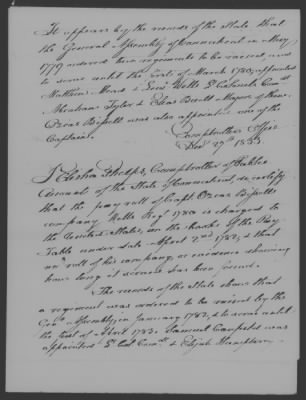 It appears by the records of the State that
the General Assembly of Connecticut in May
1779 ordered two regiments to be raised and
to serve until the first of March 1780, appointed
Matthew Mead & Levi Wells Lt Colonels Comdt
Abraham Tyler & Elias Buell Majors of them.
Ozias Bissell was also appointed one of the
Captains.
Comptrollers Office
29th 1833
I Elisha Phelps, Comptroller of Public
Accounts of the State of Connecticut, do certify
that the pay roll of Capt Ozias Bissell
company, Wells Regt 1780 is charged to
the United States, on the books of the Pay
Table under date April 2nd 1782, & that
no roll of his company, or evidence shewing
how long it served has been found.
The records of the State shew that
a regiment was ordered to be raised by the
Genl Assembly in January 1782, & to serve until
the first of April 1783. Samuel Canfield was
appointed Lt Col Comdt & Elijah